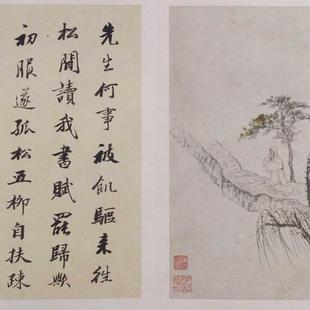 先生何事被飢驅來往
松閒讀我書賦罷歸歟
初服遂孤松五柳自扶疎